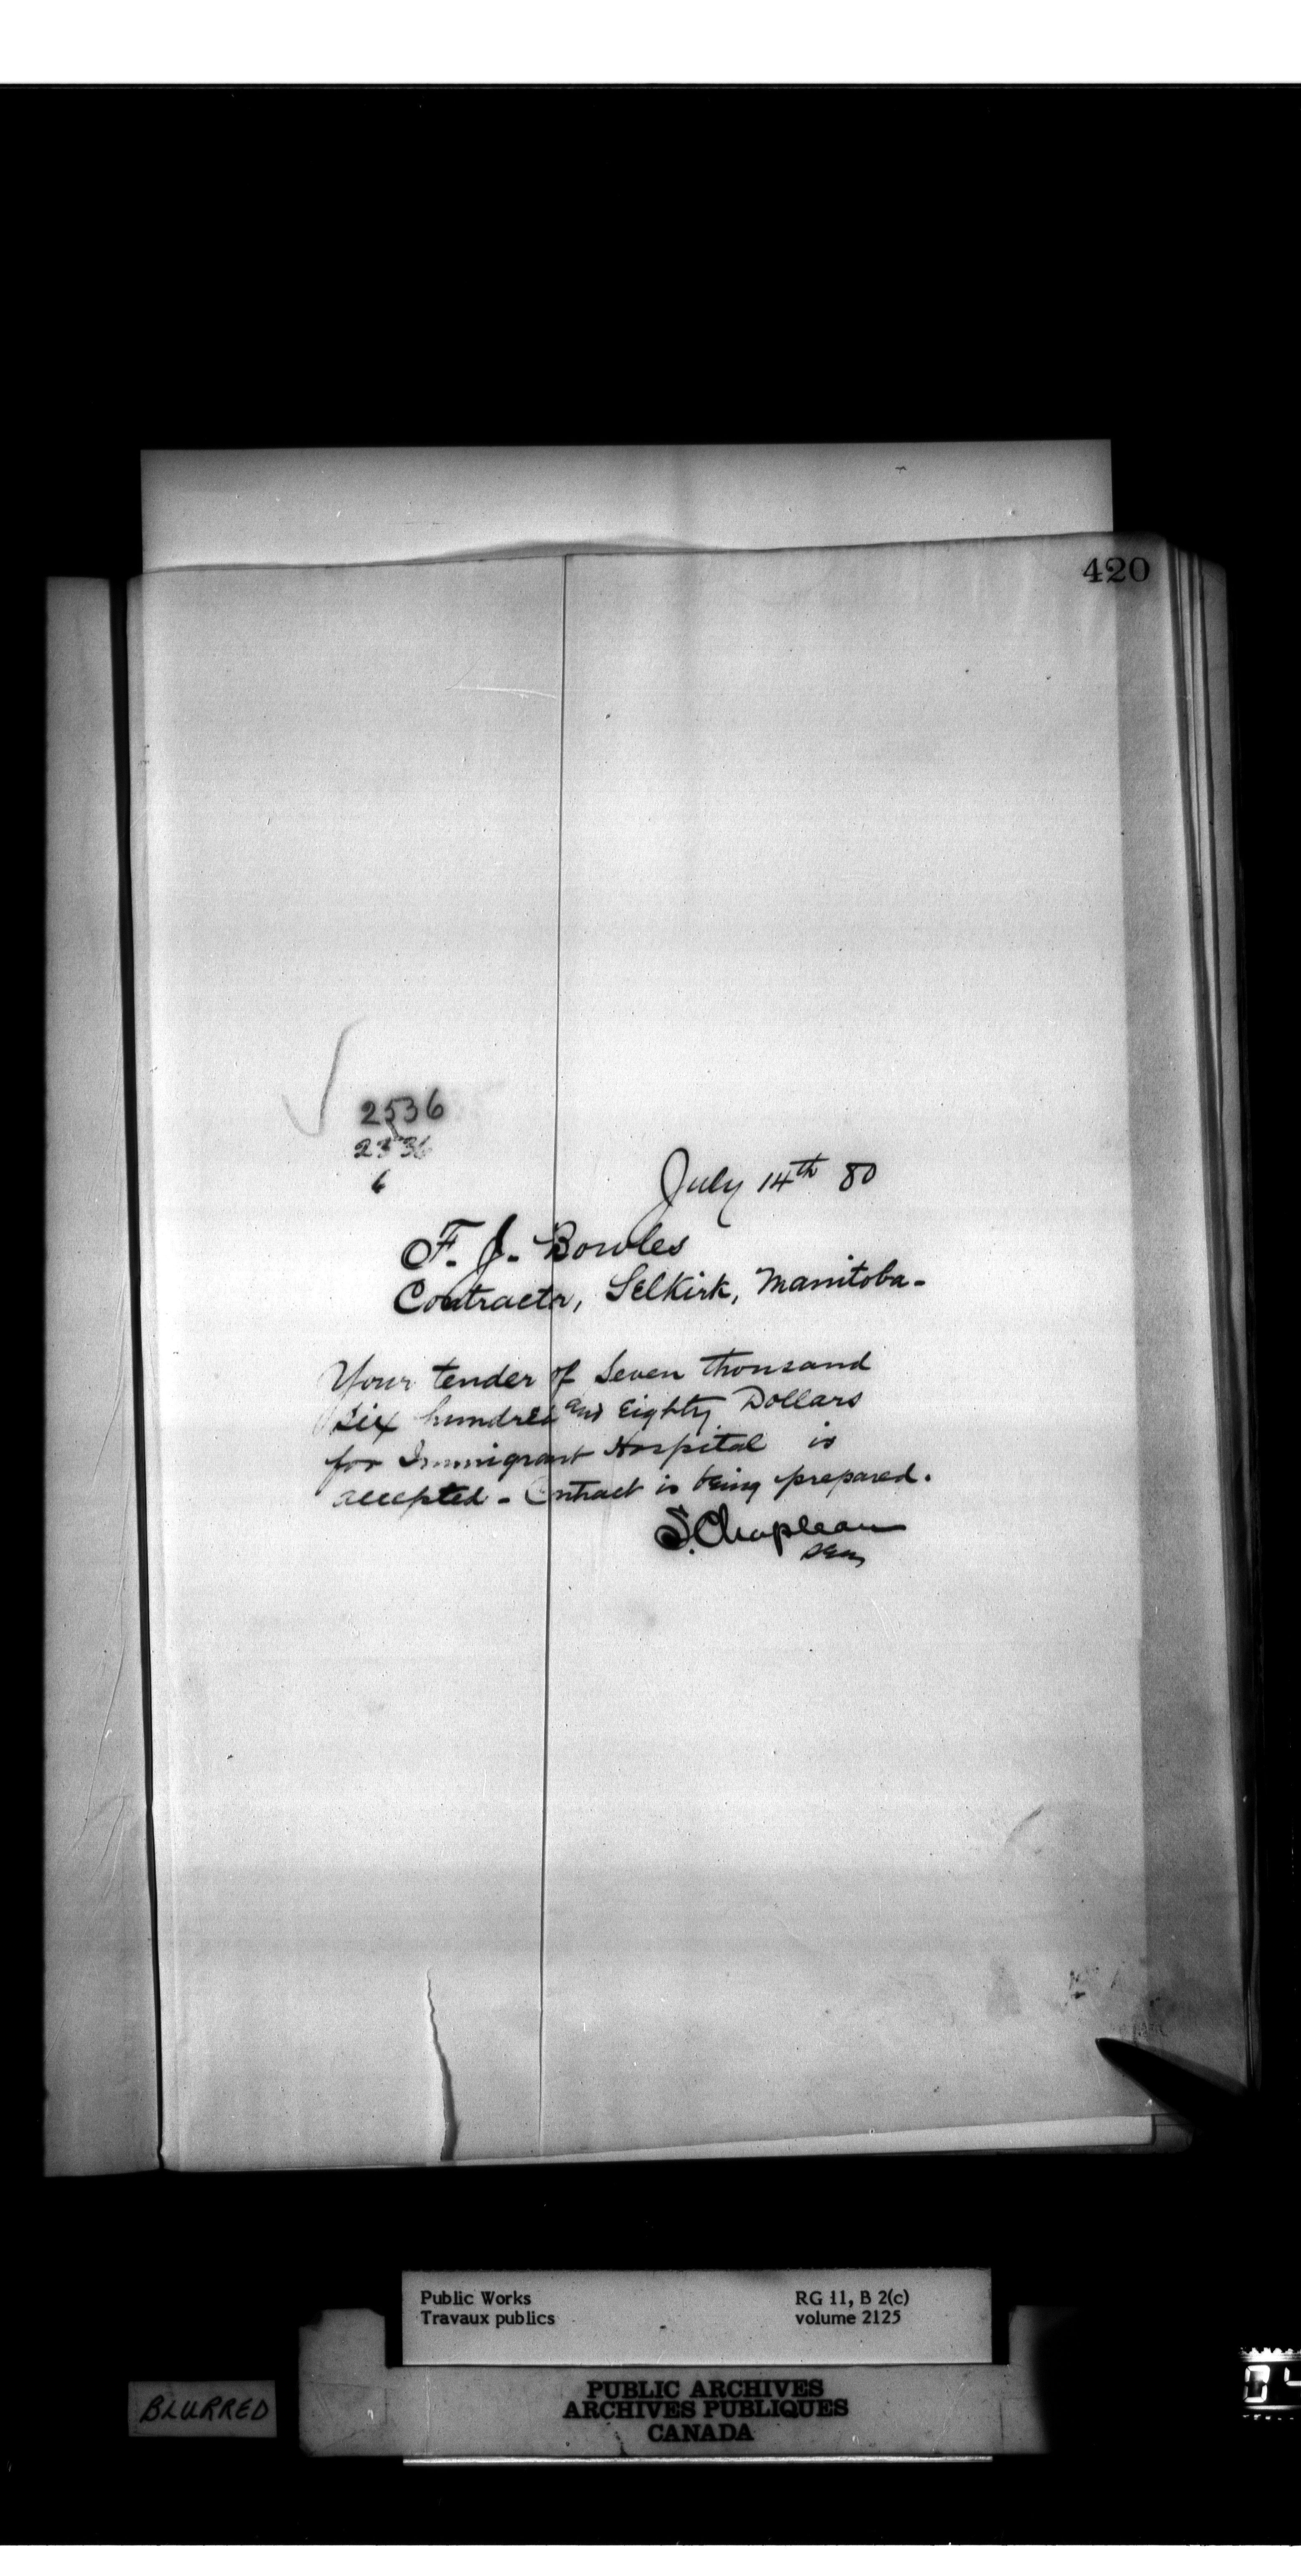 420
2536
2536
6
July 14th 80
F. J. Bowles
Contractor, Selkirk, Manitoba-
Your tender of Seven thousand
Six hundred and Eighty Dollars
for Immigrant Hospital is
accepted - Contract is being prepared.
S. Chapleau
Public Works
Travaux publics
RG 11, B 2(c)
volume 2125
BLURRED
PUBLIC ARCHIVES
ARCHIVES PUBLIQUES
CANADA